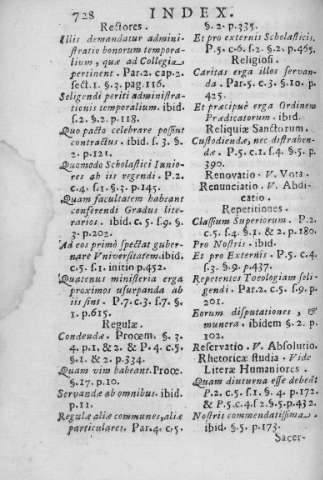 728 INDEX.
Rectores.
Illis demandatur admini-
stratio bonorum tempora-
lium, quæ ad Collegia
pertinent. Par.2. cap.2.
sect.1. §.3. pag.116.
Seligendi periti administra-
tionis temporalium. ibid.
s.2. §.2. p.118.
Quo pacto celebrare possint
contractus. ibid. s.3. §.
2. p.121.
Quomodo Scholastici Iunio-
res ab iis regendi. P.2.
c.4. s.1. §.3. p.145.
Quam facultatem habeant
conferendi Gradus lite-
rarios. ibid. c.5. s.9. §.
3. p.202.
Ad eos primò spectat guber-
nare Vniversitatem. ibid.
c.5. s.1. initio p.452.
Quatenus ministeria erga
proximos usurpanda ab
iis sint. P.7. c.3. s.7. §.
1. p.615.
Regulæ.
Condendæ. Proœm. §.3.
4. p.1. & 2. & P.4. c.5.
§.1. & 2. p.334.
Quam vim habeant. Proœ.
§.17. p.10.
Servandæ ab omnibus. ibid.
p.12.
Regulæ aliæ communes, aliæ
particulares. Par.4. c.5.
§.2. p.335.
Et pro externis Scholasticis.
P.5. c.6. s.2. §.2. p.465.
Religiosi.
Caritas erga illos servan-
da. Par.5. c.3. §.10. p.
425.
Et præcipuè erga Ordinem
Prædicatorum. ibid.
Reliquiæ Sanctorum.
Custodiendæ, nec distrahen-
dæ. P.5. c.1. s.4. §.5. p.
390.
Renovatio. V. Vota.
Renunciatio. V. Abdi-
catio.
Repetitiones.
Classium Superiorum. P.2.
c.5. s.4. §.1. & 2. p.180.
Pro Nostris. ibid.
Et pro Externis. P.5. c.4.
s.3. §.9. p.437.
Repetentes Theologiam soli-
gendi. Par.2. c.5. s.9. p.
201.
Eorum disputationes, &
munera. ibidem §.2. p.
102.
Reservatio. V. Absolutio.
Rhetoricæ studia. Vide
Literæ Humaniores.
Quam diuturna esse debeāt
P.2. c.5. s.1. §.4. p.172.
& P.5. c.4. s.2. §.5. p.432.
Nostris commendatissima.
ibid. §.5. p.173.
Sacer-